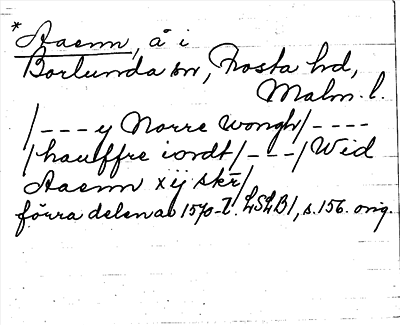 *Aaenn, å i
Borlunda sn, Frosta hd,
Malm. l.
/ - - - y Norre wongh/ - - - -
/hauffre iordt/ - - - / Wid
Aaenn xij skr/
förra delen av 1570-t. LSLB1, s. 156. orig.